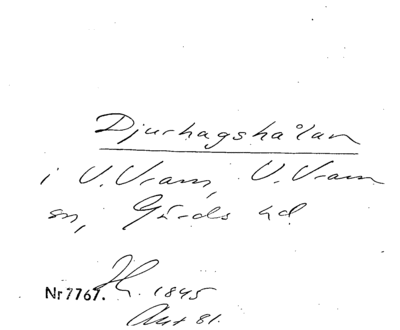 Djurhagshålan
i V. Vram, V. Vram
sn, Gärds hd.
Nr 7767. 1845
Akt 81.